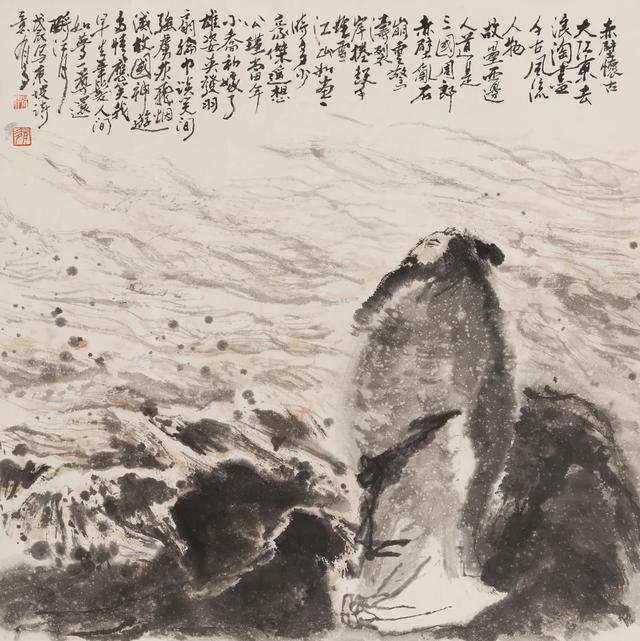 赤壁懷古
大江東去
浪淘盡
千古風流
人物
故壘西邊
人道是
三國周郎
赤壁亂石
崩雲驚
濤裂
岸捲起千
堆雪
江山如畫一
時多少
豪傑遙想
公瑾當年
小喬初嫁了
雄姿英發羽
扇綸巾談笑間
強虜灰飛烟
滅故國神遊
多情應笑我
早生華髮人間
如夢一尊還
酹江月
戊戌写東坡詩
意